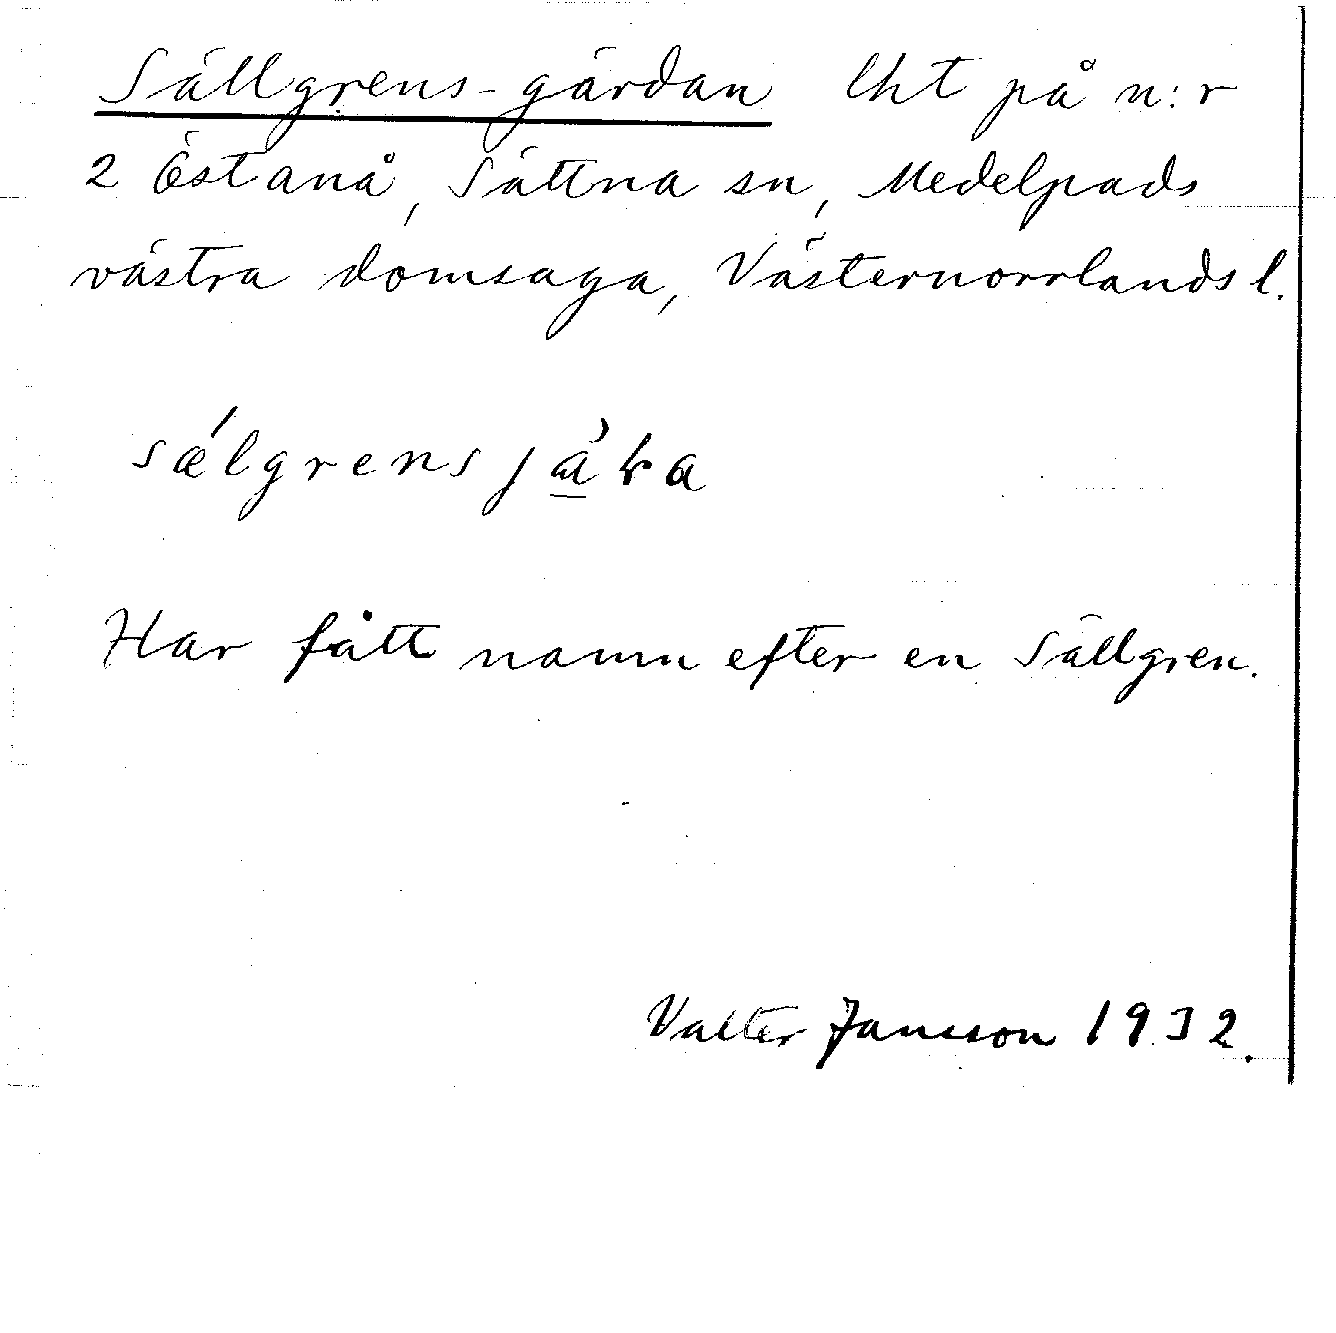 Sällgrens-gärdan lht på n:r
2 Östanå, Sättna sn, Medelpads
västra domsaga, Västernorrlands l.
Har fått namn efter en Sällgren.
Valter Jansson 1932.